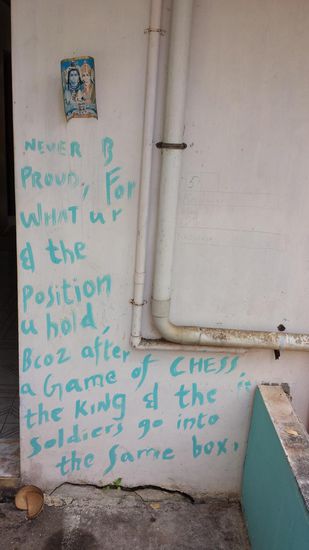 NEVER B
PROUD, FOR
WHAT U R
& the
Position
u hold,
Bcoz after
a Game of CHESS,
the KING & the "
Soldiers go into
the Same box.